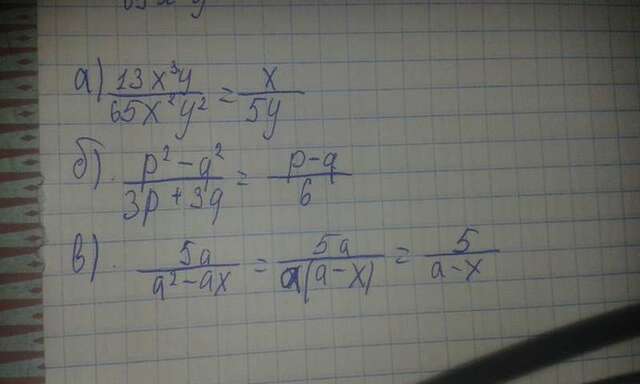 а) 13x³y / 65x²y² = x / 5y
б). p² - q² / 3p + 3q = p - q / 6
в). 5a / a² - ax = 5a / a(a - x) = 5 / a - x